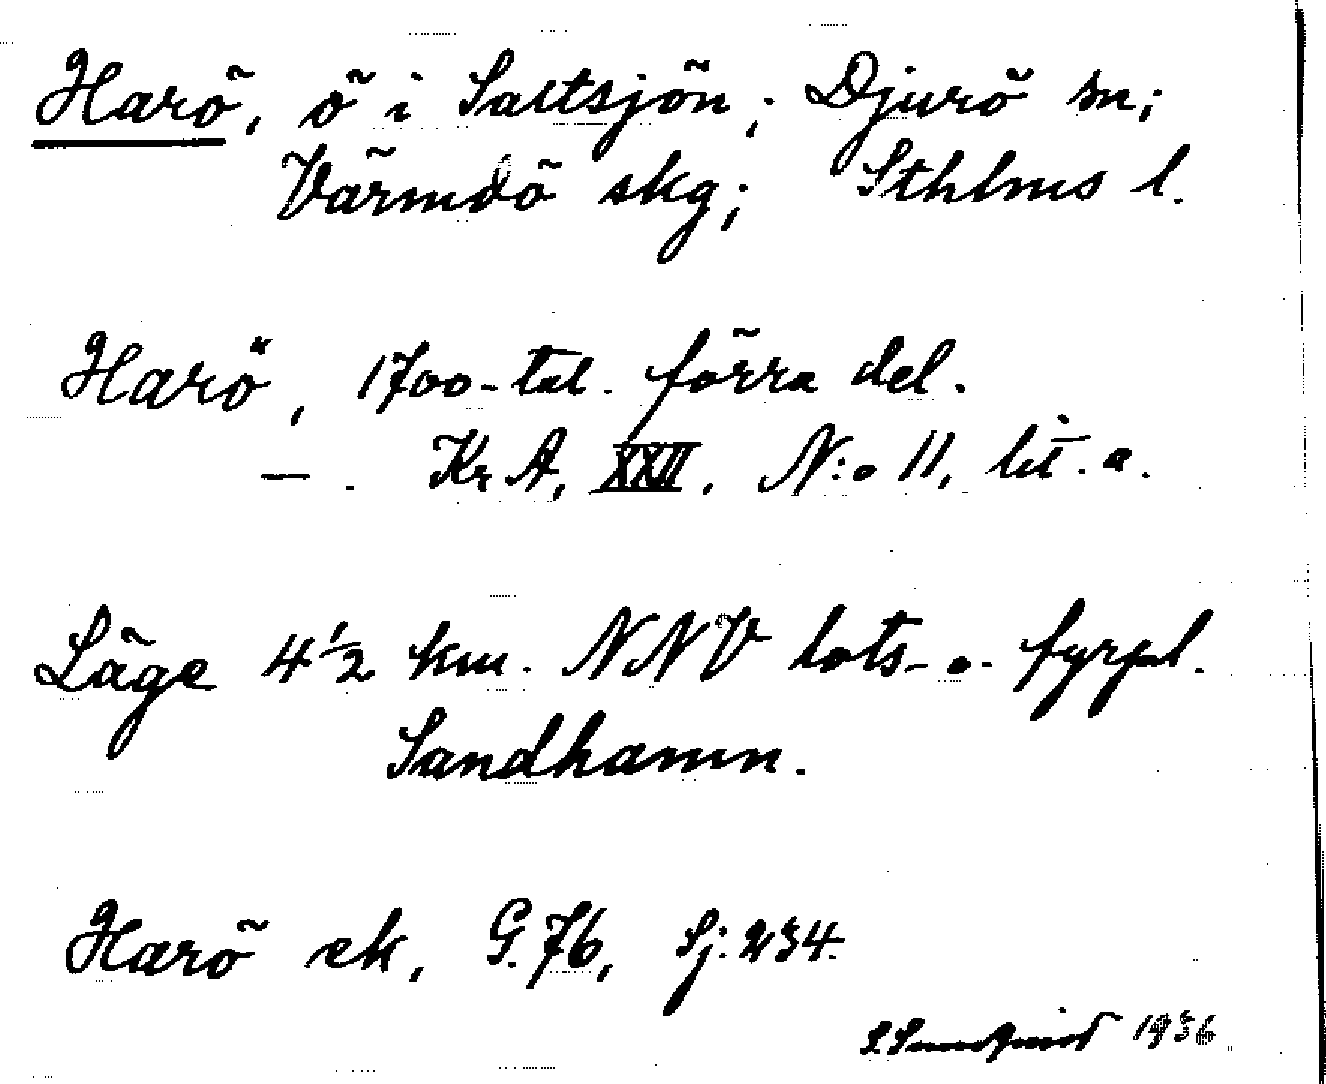 Harö, ö i Saltsjön; Djurö sn;
Värmdö skg; Sthlms l.
Harö, 1700-tal. förra del.
— . Kr A, XXII, N:o 11, lit. a.
Läge 4 1/2 km. NNV lots- o. fyrpl.
Sandhamn.
Harö ek, G. 76, Sj: 234.
1936